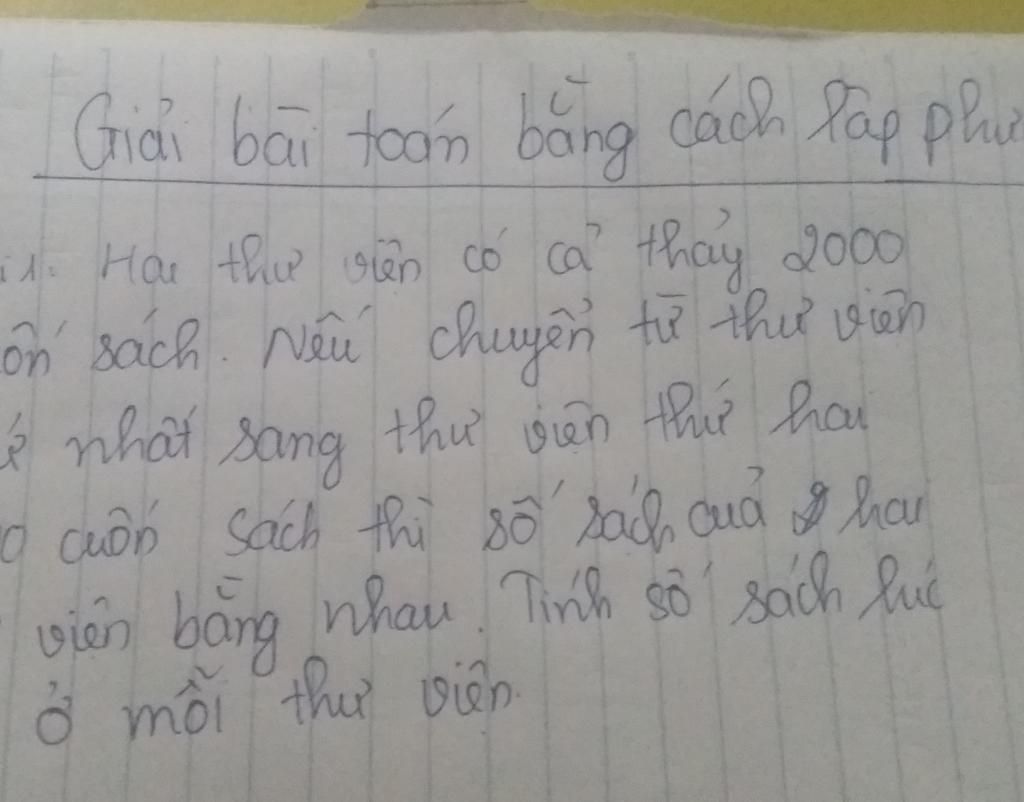 Giải bài toán bằng cách lập phư
i1. Hai thư viện có cả thảy 2000
ốn sách. Nếu chuyển từ thư viện
ứ nhất sang thư viện thứ hai
0 cuốn sách thì số sách của hai
viện bằng nhau. Tính số sách lúc
ở mỗi thư viện.